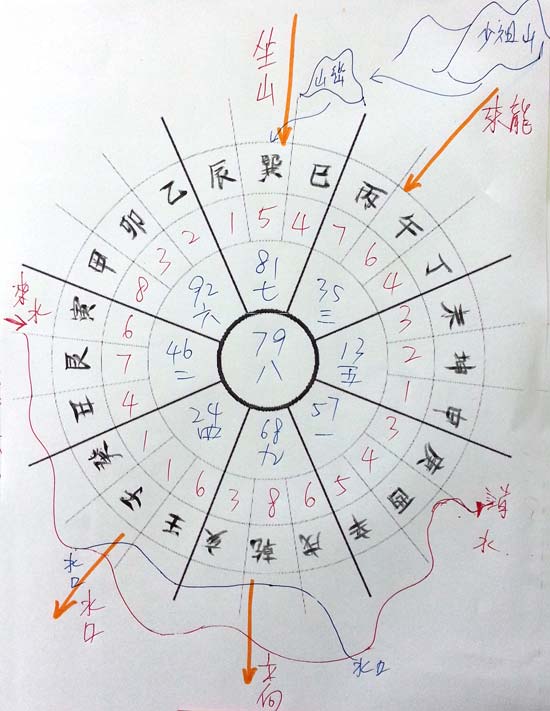 坐山
少祖山
巽
巳
丙
午
丁
未
坤
申
庚
酉
辛
戌
乾
亥
壬
子
癸
丑
艮
寅
甲
卯
乙
辰
5
4
7
6
4
3
2
1
3
4
5
6
8
3
6
1
1
4
7
6
8
3
2
1
81
七
35
三
13
五
57
一
68
九
24
四
46
二
92
六
79
八
來水
水
水口
水口
水口
向